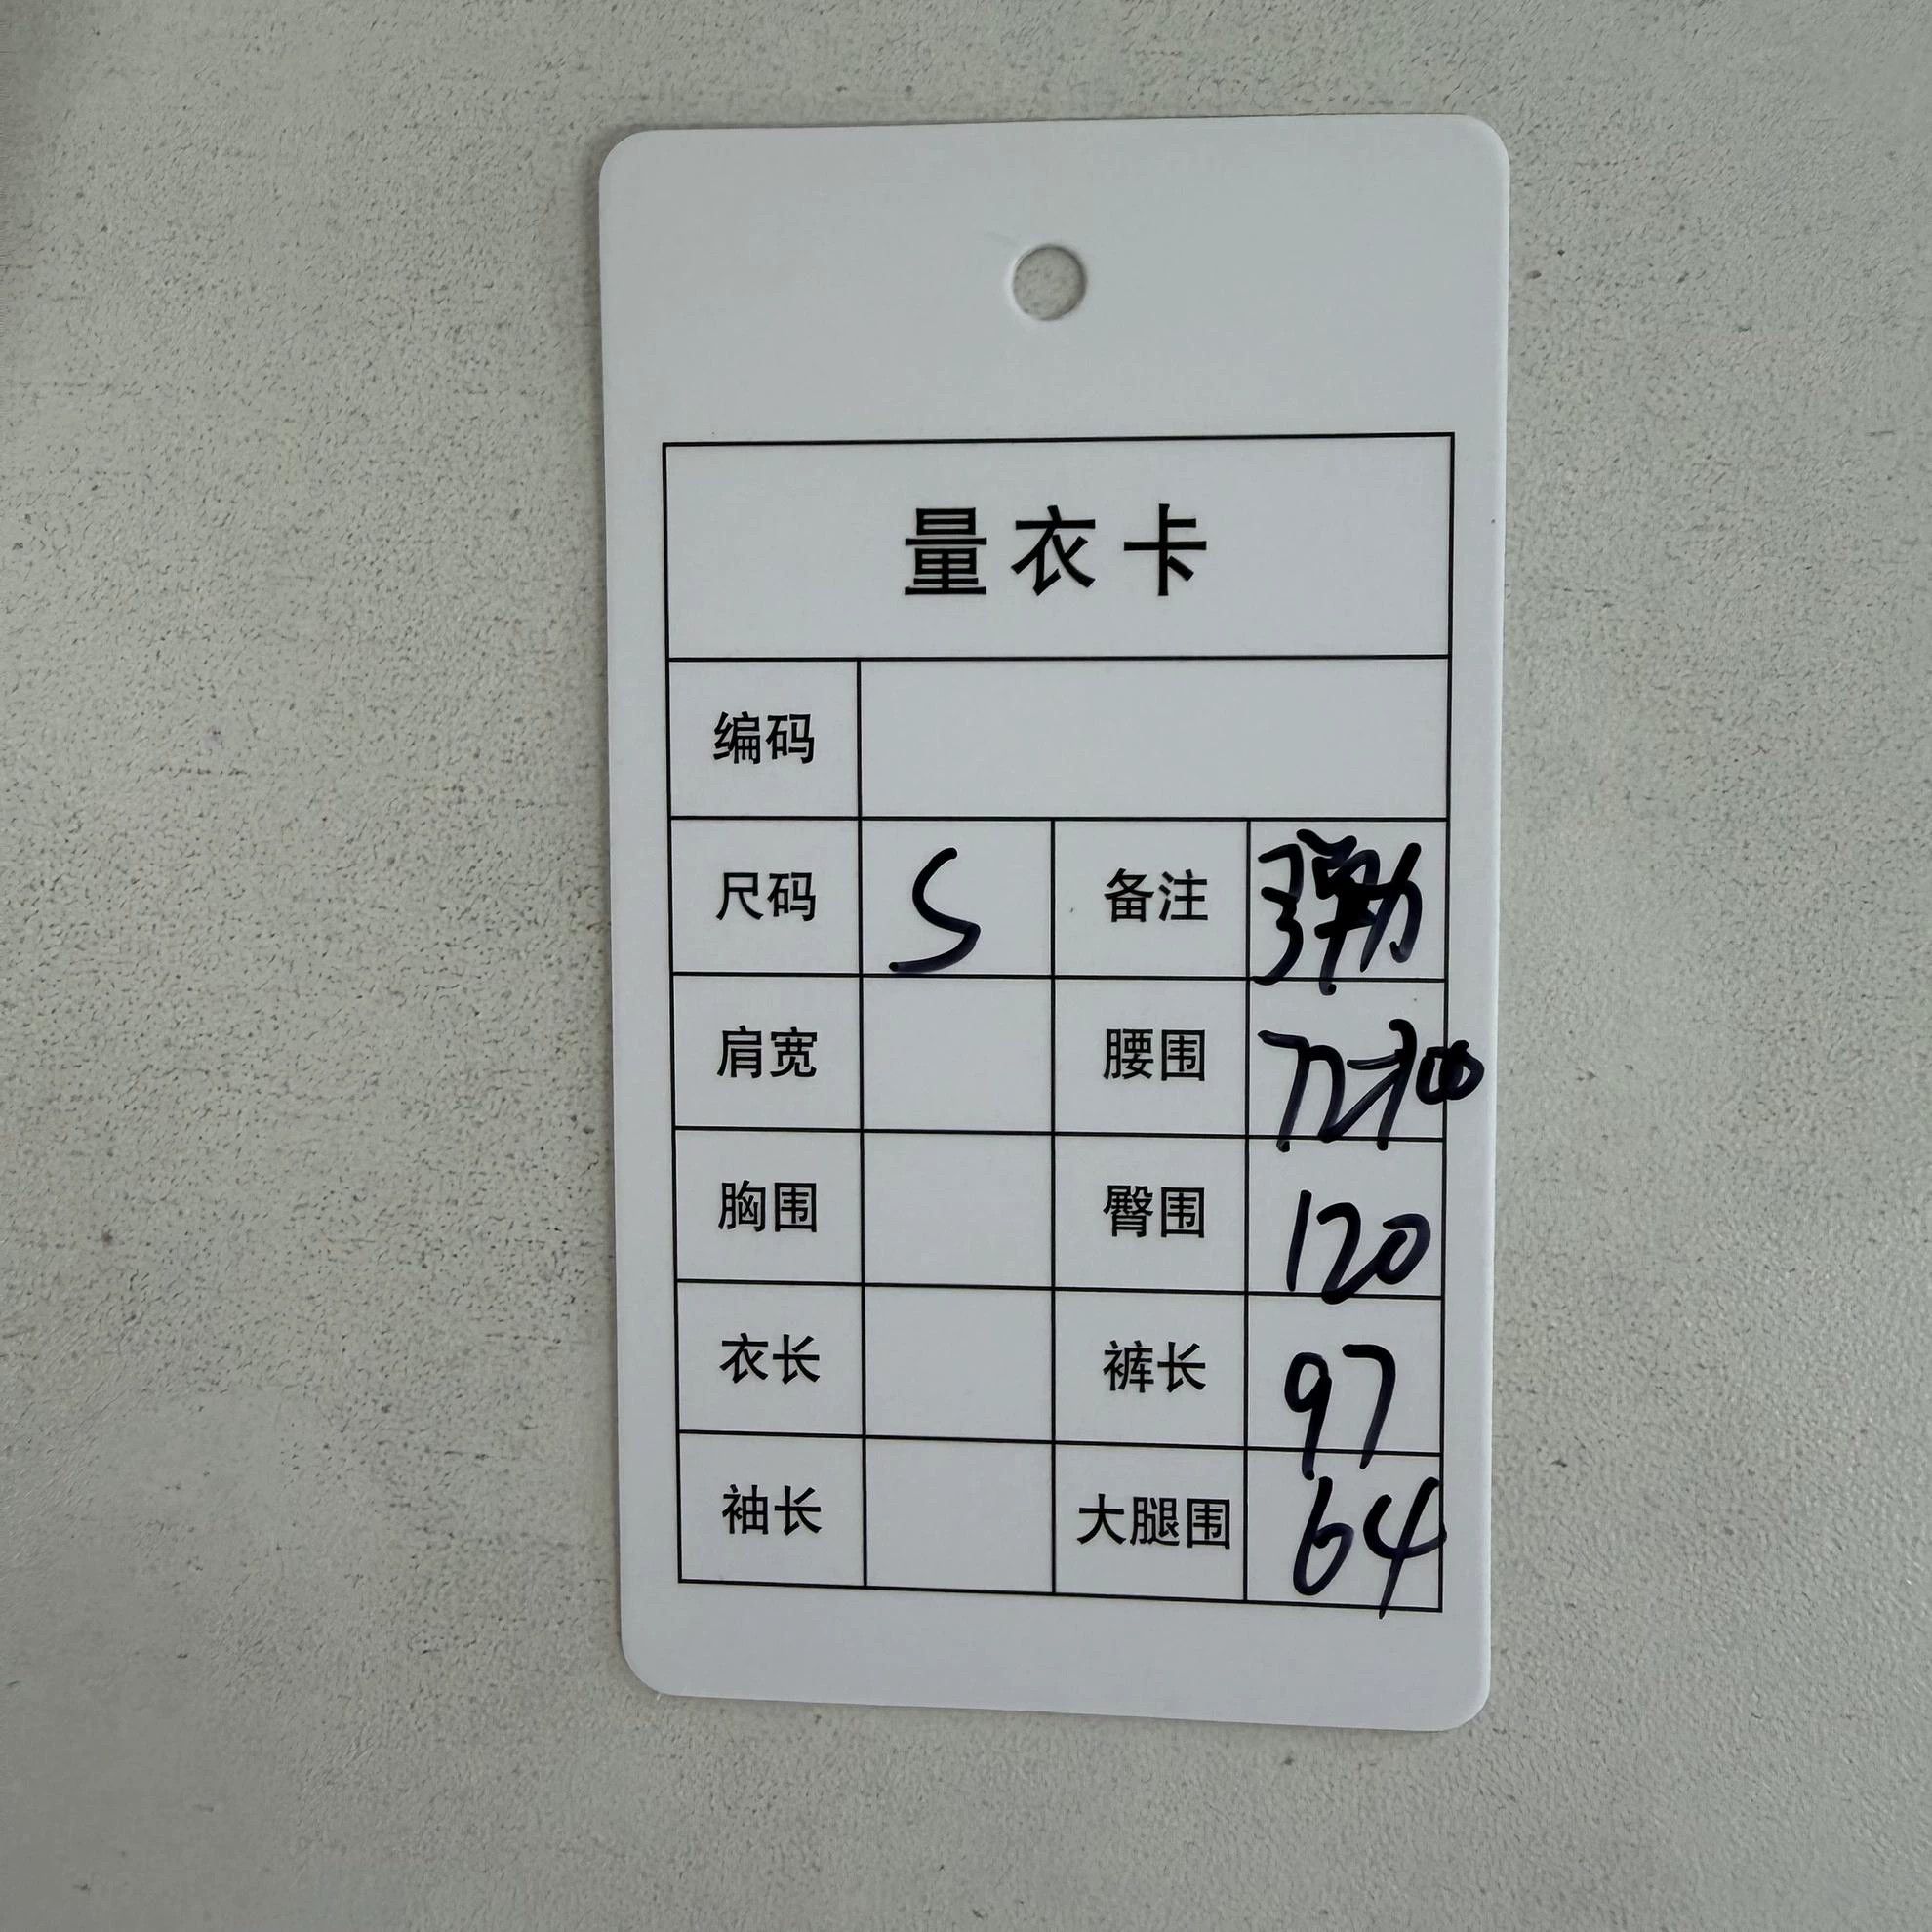 量衣卡
编码
尺码 S 备注 弹力
肩宽 腰围
胸围 臀围 120
衣长 裤长 97
袖长 大腿围 64